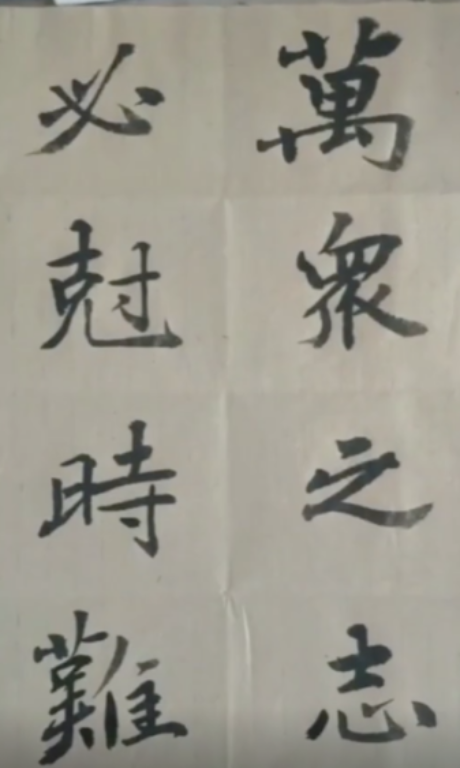 萬衆之志
必尅時難